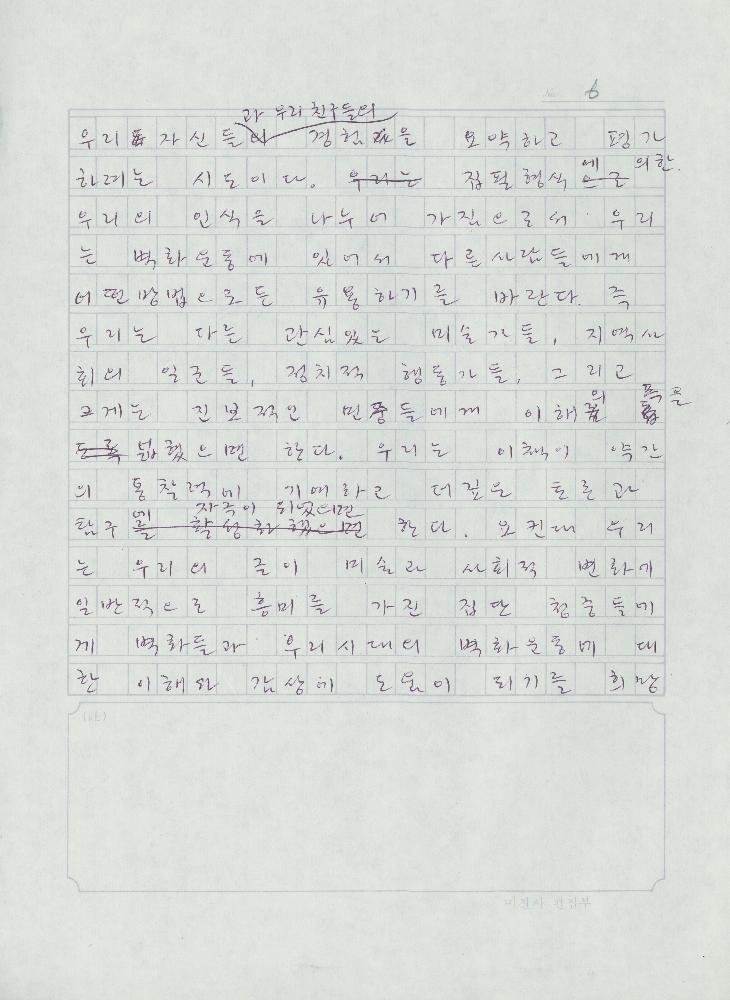 No. 6
과 우리 친구들의
우리 자신들의 경험을 요약하고 평가
하려는 시도이다. 우리는 집필형식으로
에 의한
우리의 인식을 나누어 가짐으로서 우리
는 벽화운동에 있어서 다른 사람들에게
어떤 방법으로든 유용하기를 바란다. 즉
우리는 다른 관심있는 미술가들, 지역사
회의 일군들, 정치적 행동가들, 그리고
의 폭을
크게는 진보적인 민중들에게 이해
도록 넓혔으면 한다. 우리는 이책이 약간
의 통찰력에 기여하고 더깊은 토론과
에 자극이 되었으면
탐구를 활성화했으면 한다. 요컨대 우리
는 우리의 글이 미술과 사회적 변화에
일반적으로 흥미를 가진 집단 청중들에
게 벽화들과 우리시대의 벽화운동에 대
한 이해와 감상에 도움이 되기를 희망
미진사 편집부